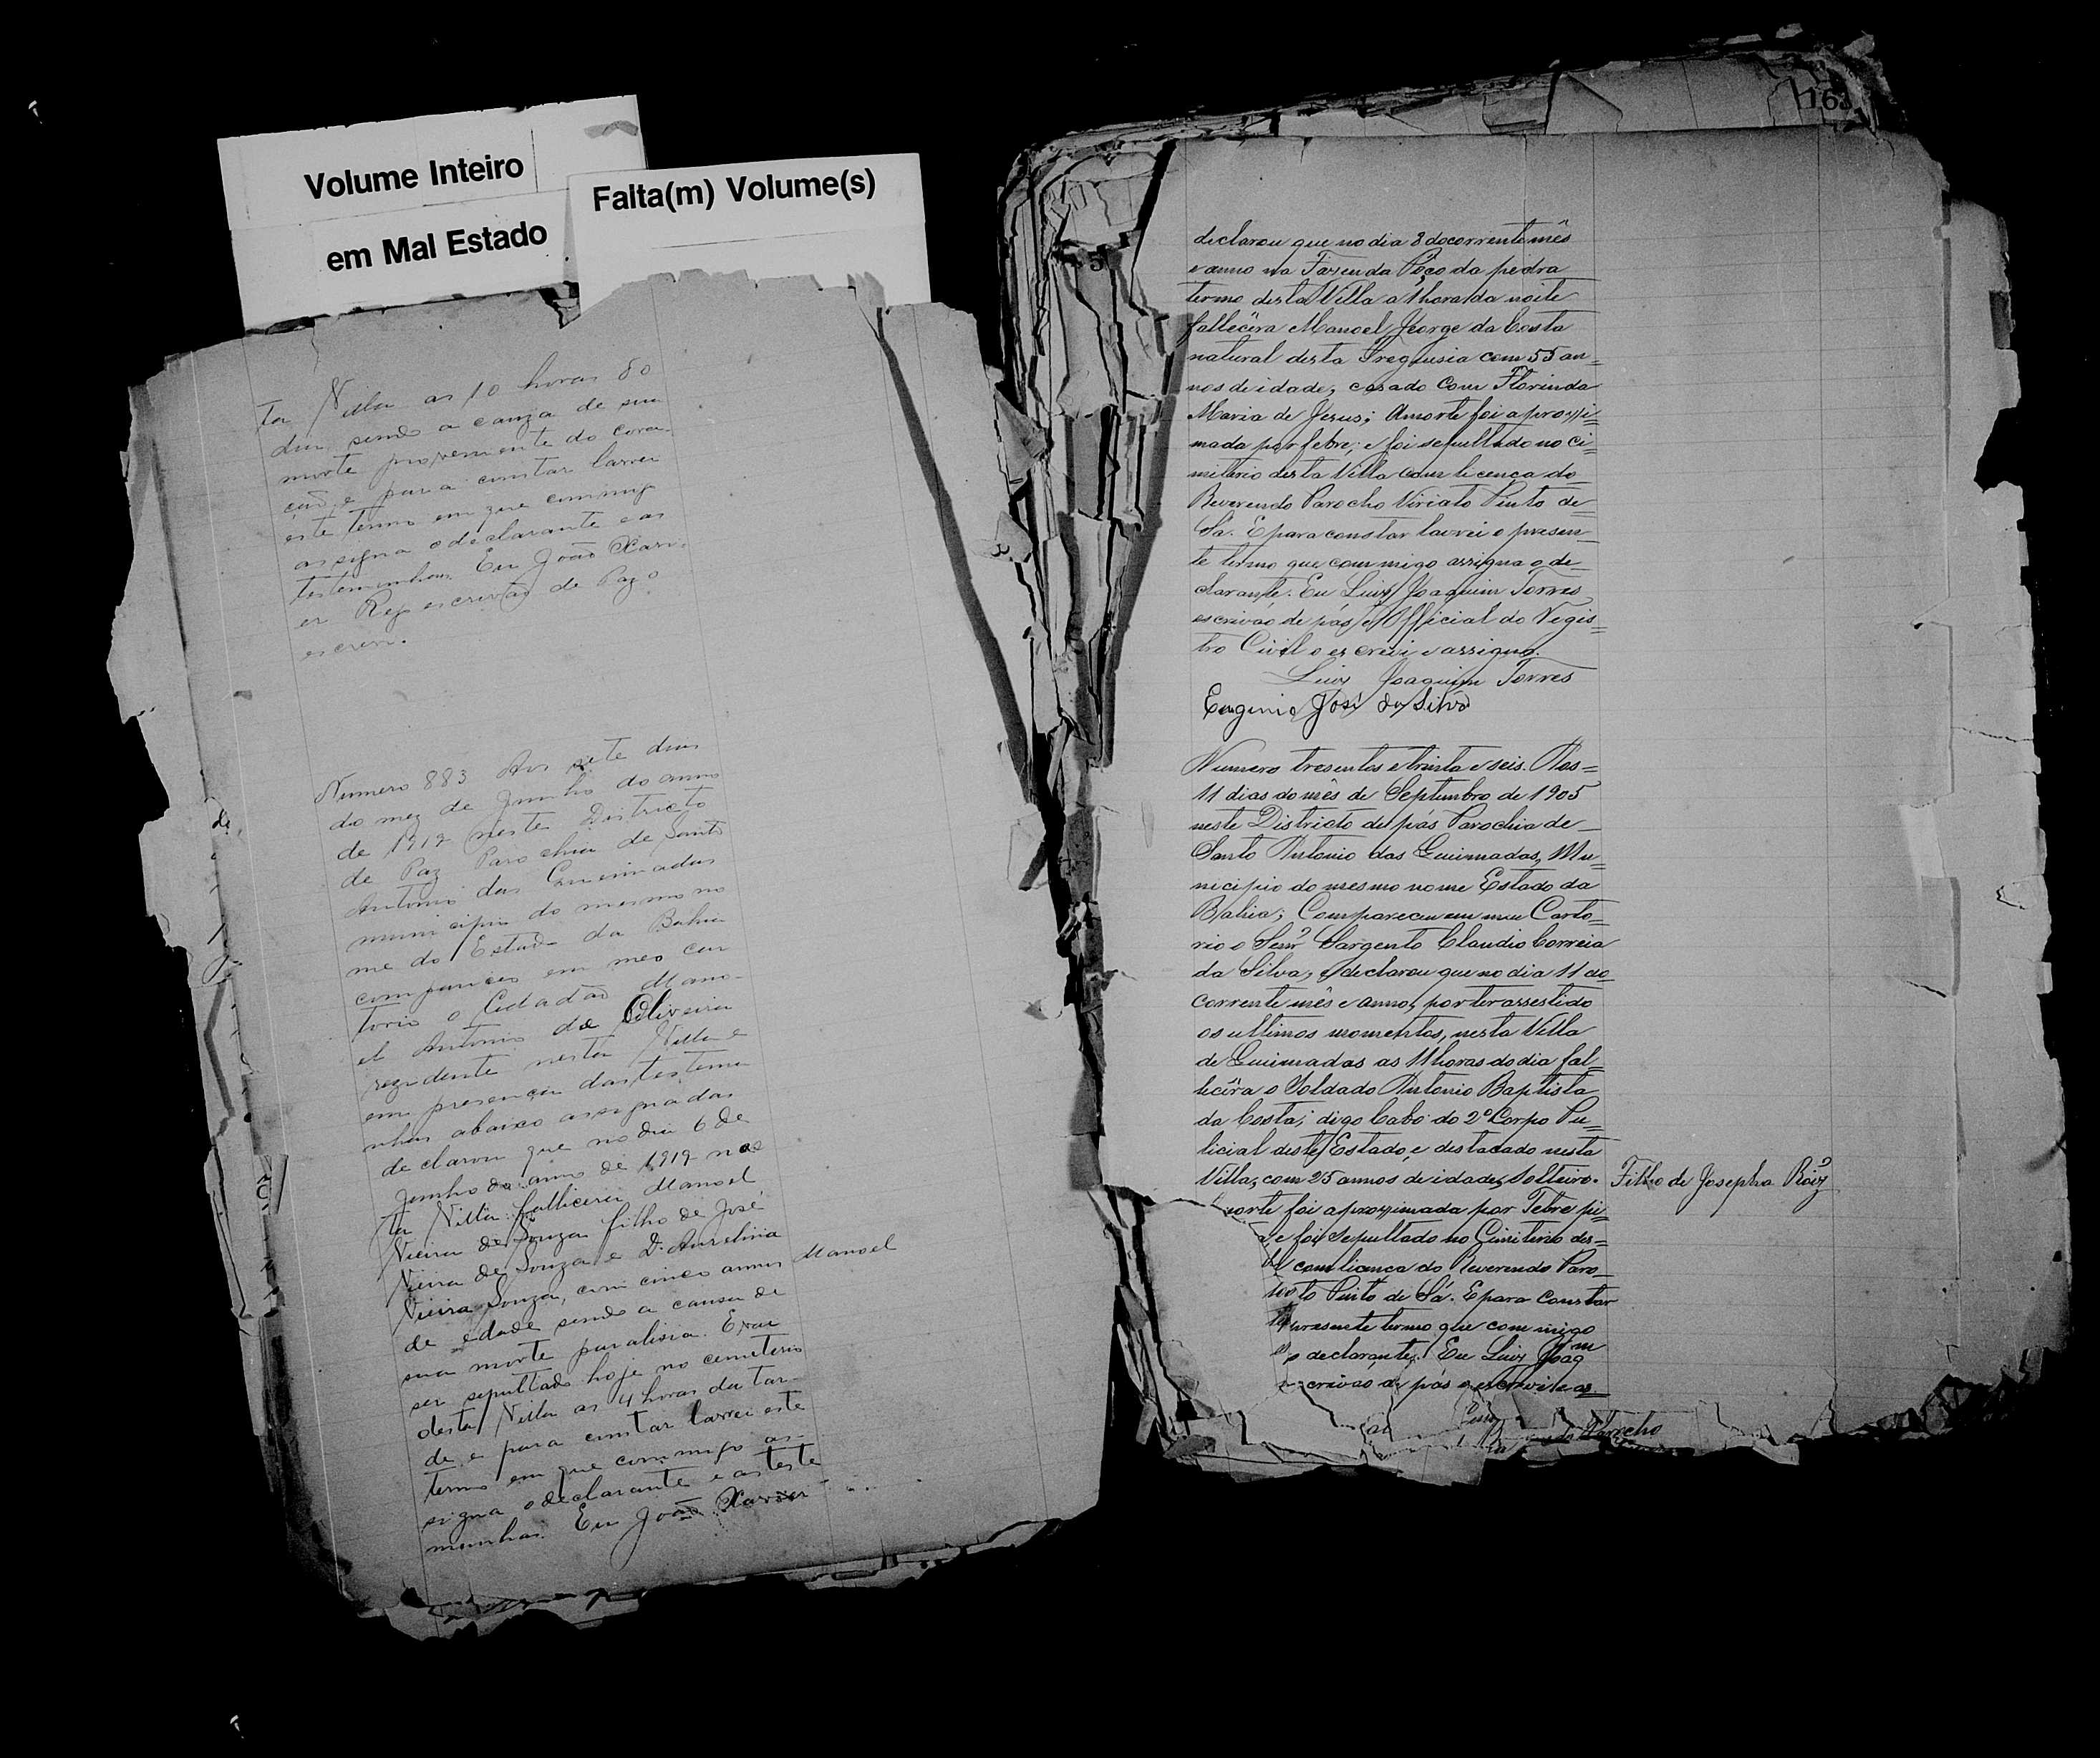 Volume Inteiro
em Mal Estado
Falta(m) Volume(s)
ta Villa as 10 horas do
dia sendo a cauza de sua
morte proveniente do cora-
ção, e para constar lavrei
este termo em que commigo
assigna o declarante e as
testemunhas. Eu João Xavi-
er Rego escrivão de Paz o
escrevi.
Numero 883 Aos sete dias
do mez de Junho do anno
de 1919 neste Districto
de Paz Parochia de Santo
Antonio das Queimadas
municipio do mesmo no
me do Estado da Bahia
compareceu em meo car
torio o Cidadão Mano-
el Antonio de Oliveira
rezidente nesta Villa e
em presença das testemu
nhas abaixo assignadas
declarou que no dia 6 de
Junho do anno de 1919 nes
ta Villa fallicera Manoel
Vieira de Souza filho de José
Vieira de Souza e D. Aurelina
Vieira Souza, com cinco annos Manoel
de edade sendo a causa de
sua morte paralisia. E vai
ser sepultado hoje no cemeterio
desta Villa as 4 horas da tar-
de, e para constar lavrei este
termo em que commigo as-
signa o declarante e as teste
munhas. Eu João Xavier
163
declarou que no dia 8 do corrente mês
e anno na Fazenda Pôço da pedra
termo desta Villa a 1 hora da noite
fallecêra Manoel Jeorge da Costa
natural desta Freguesia com 55 an=
nos de idade, casado com Florinda
Maria de Jesus; A morte foi aproxi=
mada por febre; e foi sepultado no ci=
miterio desta Villa com licença do
Reverendo Parocho Viriato Pinto de=
Sá. E para constar lavrei o presen=
te termo que com migo assigna o de=
clarante. Eu Luiz Joaquim Torres
escrivão de pás e Official do Regis=
tro Civil o escrevi e assigno.
Luiz Joaquim Torres
Eugenio José da Silva
Numero tresentos e trinta e seis. Aos=
11 dias do mês de Septembro de 1905
neste Districto de pás Parochia de
Santo Antonio das Queimadas, Mu=
nicipio do mesmo nome Estado da
Bahia; Compareceu em meu Carto=
rio o Senr Sargento Claudio Correia
da Silva, e declarou que no dia 11 do
corrente mês e anno, por ter assestido
os ultimos momentos, nesta Villa
de Queimadas as 11 horas do dia fal=
lecêra o Soldado Antonio Baptista
da Costa; digo Cabo do 2º Corpo Pu=
licial deste Estado, e destacado nesta
Villa, com 25 annos de idade, Solteiro. Filho de Josepha Roiz
morte foi aproximada por Febre pi=
a, e foi sepultado no Cimiterio des=
com licença do Reverendo Paro=
Pinto de Sá. E para constar
presente termo que com migo
o declarante. Eu Luiz Joaqm
escrivão de pás o escrevi e as
Parocho